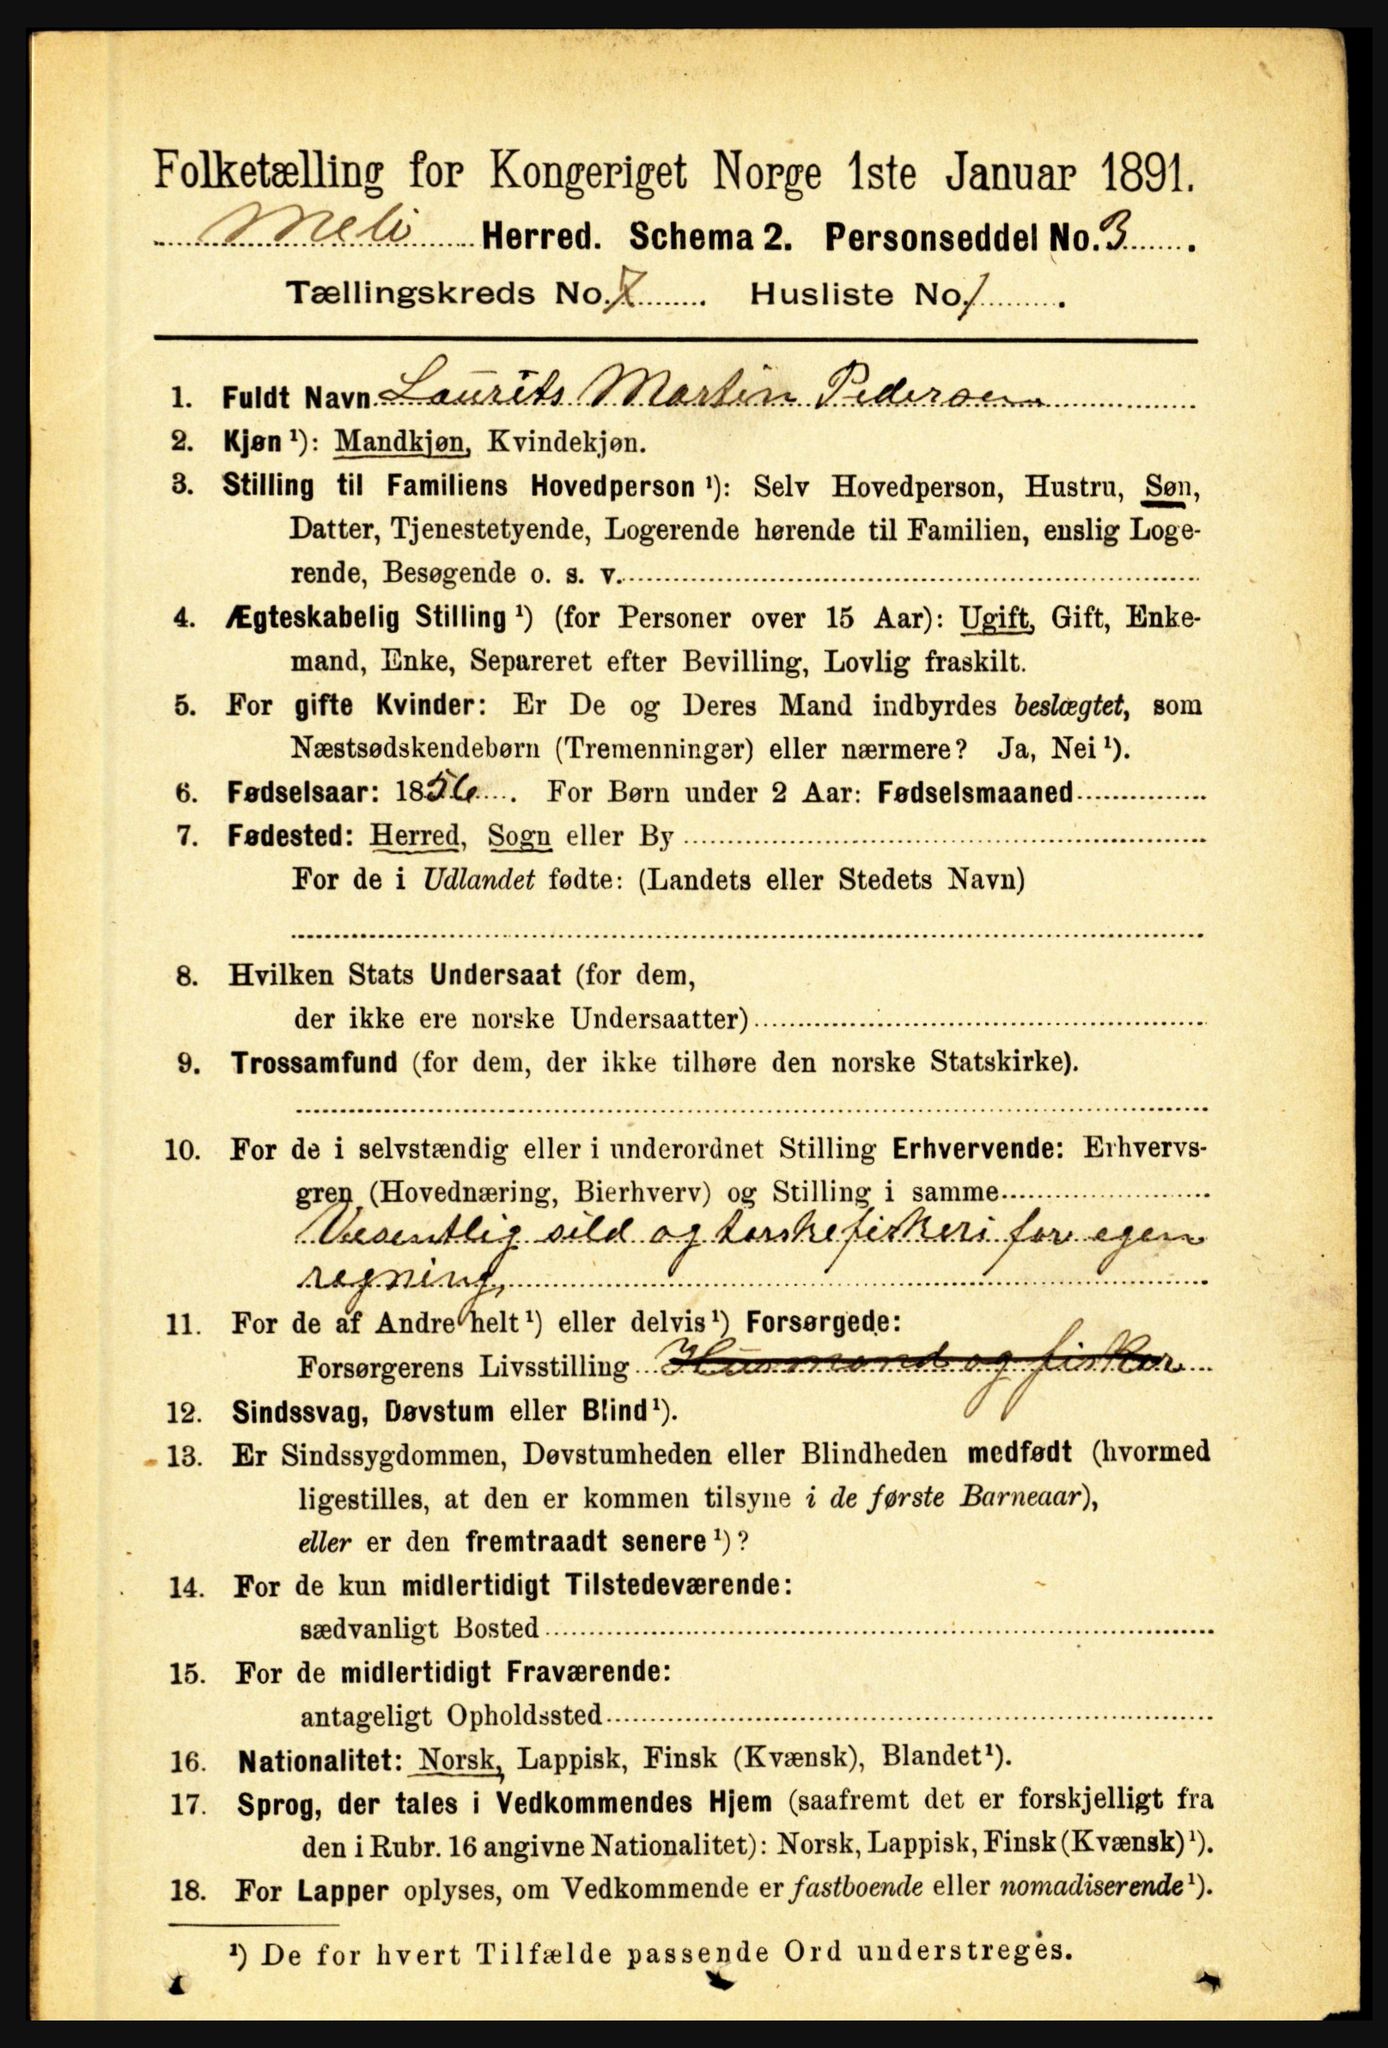 Folketælling for Kongeriget Norge 1ste Januar 1891.
Melø Herred. Schema 2. Personseddel No. 3.
Tællingskreds No. 7. Husliste No. 1.
1. Fuldt Navn Laurits Martin Pedersen
2. Kjøn ¹): Mandkjøn, Kvindekjøn.
3. Stilling til Familiens Hovedperson ¹): Selv Hovedperson, Hustru, Søn,
Datter, Tjenestetyende, Logerende hørende til Familien, enslig Loge-
rende, Besøgende o. s. v.
4. Ægteskabelig Stilling ¹) (for Personer over 15 Aar): Ugift, Gift, Enke-
mand, Enke, Separeret efter Bevilling, Lovlig fraskilt.
5. For gifte Kvinder: Er De og Deres Mand indbyrdes beslægtet, som
Næstsødskendebørn (Tremenninger) eller nærmere? Ja, Nei ¹).
6. Fødselsaar: 1856. For Børn under 2 Aar: Fødselsmaaned
7. Fødested: Herred, Sogn eller By
For de i Udlandet fødte: (Landets eller Stedets Navn)
8. Hvilken Stats Undersaat (for dem,
der ikke ere norske Undersaatter)
9. Trossamfund (for dem, der ikke tilhøre den norske Statskirke).
10. For de i selvstændig eller i underordnet Stilling Erhvervende: Erhvervs-
gren (Hovednæring, Bierhverv) og Stilling i samme
Vesentlig sild og torskefiskeri for egen
regning,
11. For de af Andre helt ¹) eller delvis ¹) Forsørgede:
Forsørgerens Livsstilling Husmand og fisker
12. Sindssvag, Døvstum eller Blind ¹).
13. Er Sindssygdommen, Døvstumheden eller Blindheden medfødt (hvormed
ligestilles, at den er kommen tilsyne i de første Barneaar),
eller er den fremtraadt senere ¹)?
14. For de kun midlertidigt Tilstedeværende:
sædvanligt Bosted
15. For de midlertidigt Fraværende:
antageligt Opholdssted
16. Nationalitet: Norsk, Lappisk, Finsk (Kvænsk), Blandet ¹).
17. Sprog, der tales i Vedkommendes Hjem (saafremt det er forskjelligt fra
den i Rubr. 16 angivne Nationalitet): Norsk, Lappisk, Finsk (Kvænsk) ¹).
18. For Lapper oplyses, om Vedkommende er fastboende eller nomadiserende ¹).
¹) De for hvert Tilfælde passende Ord understreges.